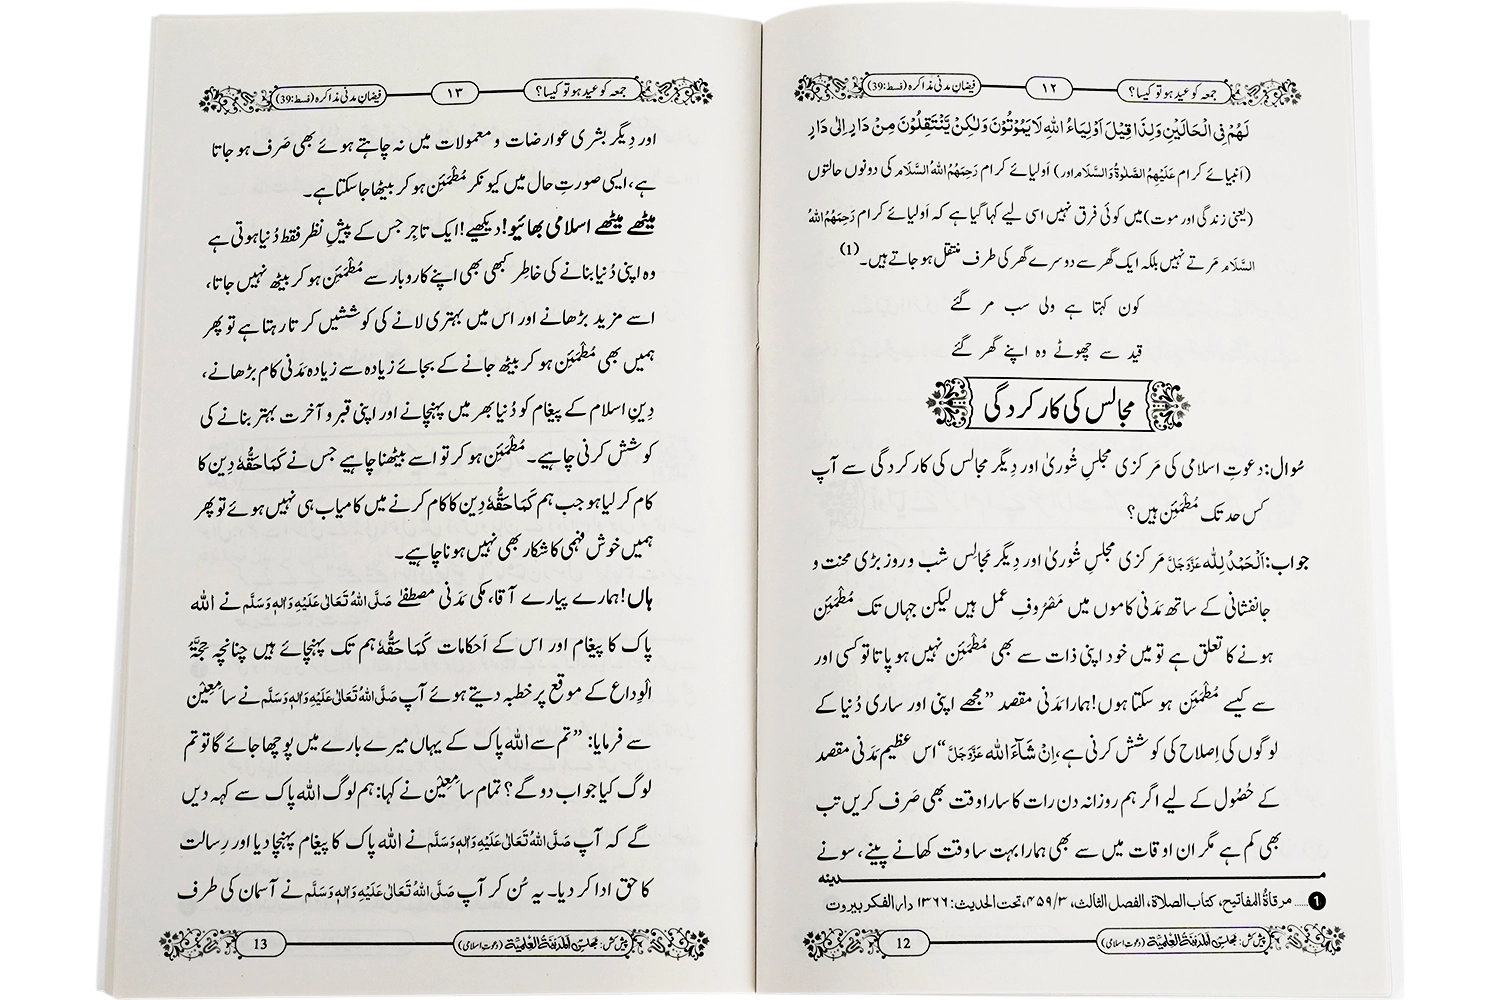 فیضانِ مدنی مذاکرہ (قسط:39)
۱۲
جمعہ کو عید ہو تو کیسا؟
لَهُمْ فِی الْحَالَیْنِ وَلِذَا قِیْلَ اَوْلِیَاءُ اللهِ لَا یَمُوْتُوْنَ وَلٰکِنْ یَّنْتَقِلُوْنَ مِنْ دَارٍ اِلٰی دَارٍ
(اَنبیائے کرام عَلَیْهِمُ الصَّلٰوةُ وَالسَّلَام اور) اَولیائے کرام رَحِمَهُمُ اللهُ السَّلَام کی دونوں حالتوں
(یعنی زندگی اور موت) میں کوئی فرق نہیں اسی لیے کہا گیا ہے کہ اَولیائے کرام رَحِمَهُمُ اللهُ
السَّلَام مَرتے نہیں بلکہ ایک گھر سے دوسرے گھر کی طرف منتقل ہو جاتے ہیں۔ (1)
کون کہتا ہے ولی سب مر گئے
قید سے چھوٹے وہ اپنے گھر گئے
مجالس کی کارکردگی
سُوال: دعوتِ اسلامی کی مَرکزی مجلسِ شُوریٰ اور دِیگر مجالس کی کارکردگی سے آپ
کس حد تک مُطْمَئِن ہیں؟
جواب: اَلْحَمْدُ لِلّٰه عَزَّوَجَلَّ مَرکزی مجلسِ شُوریٰ اور دِیگر مَجالِس شب و روز بڑی محنت و
جانفشانی کے ساتھ مَدَنی کاموں میں مَصْرُوفِ عمل ہیں لیکن جہاں تک مُطْمَئِن
ہونے کا تعلق ہے تو میں خود اپنی ذات سے بھی مُطْمَئِن نہیں ہو پاتا تو کسی اور
سے کیسے مُطْمَئِن ہو سکتا ہوں! ہمارا مَدَنی مقصد ”مجھے اپنی اور ساری دُنیا کے
لوگوں کی اِصلاح کی کوشش کرنی ہے، اِنْ شَآءَ اللّٰه عَزَّوَجَلَّ“ اس عظیم مَدَنی مقصد
کے حُصُول کے لیے اگر ہم روزانہ دن رات کا سارا وقت بھی صَرف کریں تب
بھی کم ہے مگر ان اوقات میں سے بھی ہمارا بہت سا وقت کھانے پینے، سونے
مدینہ
1 ..... مرقاۃ المفاتیح، کتاب الصلاۃ، الفصل الثالث، ۳/۴۵۹، تحت الحدیث: ۱۳۶۶ دار الفکر بیروت
12
پیش کش: مجلس المدینۃ العلمیۃ (دعوتِ اسلامی)
فیضانِ مدنی مذاکرہ (قسط:39)
۱۳
جمعہ کو عید ہو تو کیسا؟
اور دِیگر بشری عوارضات و معمولات میں نہ چاہتے ہوئے بھی صَرف ہو جاتا
ہے، ایسی صورتِ حال میں کیونکر مُطْمَئِن ہو کر بیٹھا جا سکتا ہے۔
میٹھے میٹھے اسلامی بھائیو! دیکھیے! ایک تاجر جس کے پیشِ نظر فقط دُنیا ہوتی ہے
وہ اپنی دُنیا بنانے کی خاطِر کبھی بھی اپنے کاروبار سے مُطْمَئِن ہو کر بیٹھ نہیں جاتا،
اسے مزید بڑھانے اور اس میں بہتری لانے کی کوششیں کرتا رہتا ہے تو پھر
ہمیں بھی مُطْمَئِن ہو کر بیٹھ جانے کے بجائے زیادہ سے زیادہ مَدَنی کام بڑھانے،
دِینِ اسلام کے پیغام کو دُنیا بھر میں پہنچانے اور اپنی قبر و آخرت بہتر بنانے کی
کوشش کرنی چاہیے۔ مُطْمَئِن ہو کر تو اسے بیٹھنا چاہیے جس نے کَمَا حَقُّہٗ دِین کا
کام کر لیا ہو جب ہم کَمَا حَقُّہٗ دِین کا کام کرنے میں کامیاب ہی نہیں ہوئے تو پھر
ہمیں خوش فہمی کا شکار بھی نہیں ہونا چاہیے۔
ہاں! ہمارے پیارے آقا، مکی مَدَنی مصطفٰے صَلَّی اللهُ تَعَالٰی عَلَیْهِ وَاٰلِهٖ وَسَلَّم نے اللہ
پاک کا پیغام اور اس کے اَحکامات کَمَا حَقُّہٗ ہم تک پہنچائے ہیں چنانچہ حَجَّۃُ
الْوِداع کے موقع پر خطبہ دیتے ہوئے آپ صَلَّی اللهُ تَعَالٰی عَلَیْهِ وَاٰلِهٖ وَسَلَّم نے سامِعِیْن
سے فرمایا: ”تم سے اللہ پاک کے یہاں میرے بارے میں پوچھا جائے گا تو تم
لوگ کیا جواب دو گے؟ تمام سامِعِیْن نے کہا: ہم لوگ اللہ پاک سے کہہ دیں
گے کہ آپ صَلَّی اللهُ تَعَالٰی عَلَیْهِ وَاٰلِهٖ وَسَلَّم نے اللہ پاک کا پیغام پہنچا دیا اور رِسالت
کا حق ادا کر دیا۔ یہ سُن کر آپ صَلَّی اللهُ تَعَالٰی عَلَیْهِ وَاٰلِهٖ وَسَلَّم نے آسمان کی طرف
13
پیش کش: مجلس المدینۃ العلمیۃ (دعوتِ اسلامی)